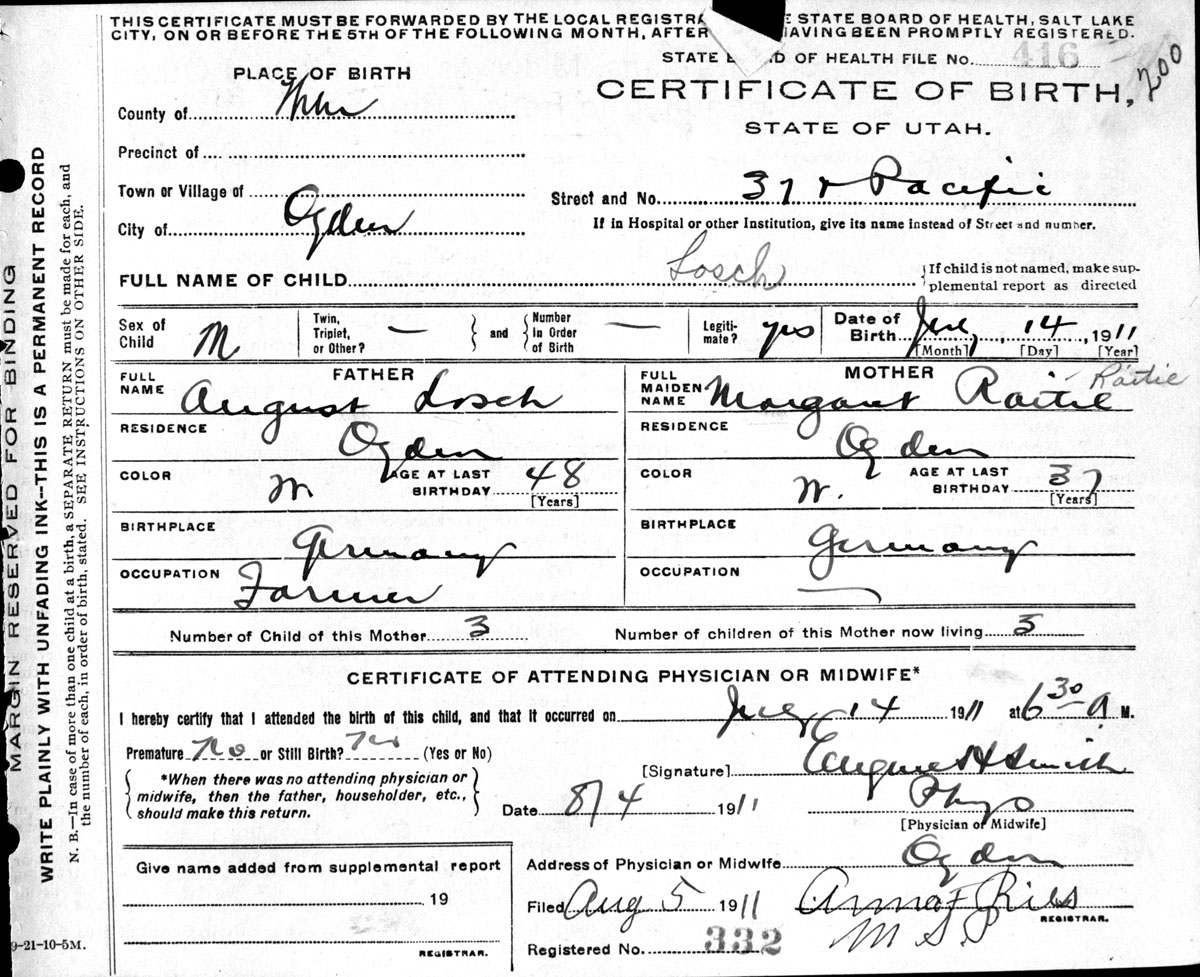 THIS CERTIFICATE MUST BE FORWARDED BY THE LOCAL REGISTRA E STATE BOARD OF HEALTH, SALT LAKE
CITY, ON OR BEFORE THE 5TH OF THE FOLLOWING MONTH, AFTER HAVING BEEN PROMPTLY REGISTERED.
STATE B D OF HEALTH FILE No. 416
200
PLACE OF BIRTH
CERTIFICATE OF BIRTH,
County of
STATE OF UTAH.
Precinct of
Town or Village of
Street and No. 37 & Pacific
City of Ogden
If in Hospital or other Institution, give its name instead of Street and number.
FULL NAME OF CHILD Losch
If child is not named, make sup-
plemental report as directed
Sex of Child M
Twin, Triplet, or Other? —
and
Number in Order of Birth —
Legiti-mate? yes
Date of Birth 14, 1911
[Month] [Day] [Year]
FATHER
FULL NAME August Losch
RESIDENCE Ogden
COLOR W
AGE AT LAST BIRTHDAY 48
[Years]
BIRTHPLACE Germany
OCCUPATION Farmer
MOTHER
FULL MAIDEN NAME Margaret Raitie Raitie
RESIDENCE Ogden
COLOR W.
AGE AT LAST BIRTHDAY 37
[Years]
BIRTHPLACE Germany
OCCUPATION —
Number of Child of this Mother 3
Number of children of this Mother now living 3
CERTIFICATE OF ATTENDING PHYSICIAN OR MIDWIFE*
I hereby certify that I attended the birth of this child, and that it occurred on 14 1911 at 6 30 A M.
Premature No or Still Birth? No (Yes or No)
*When there was no attending physician or
midwife, then the father, householder, etc.,
should make this return.
[Signature] Eugene H Smith
Date 8/4 1911 Phys
[Physician or Midwife]
Give name added from supplemental report
19
REGISTRAR.
Address of Physician or Midwife Ogden
Filed Aug 5 1911 Anna F
REGISTRAR.
Registered No. 332
9-21-10-5M.
MARGIN RESERVED FOR BINDING
WRITE PLAINLY WITH UNFADING INK--THIS IS A PERMANENT RECORD
N. B.—In case of more than one child at a birth, a SEPARATE RETURN must be made for each, and
the number of each, in order of birth, stated. SEE INSTRUCTIONS ON OTHER SIDE.